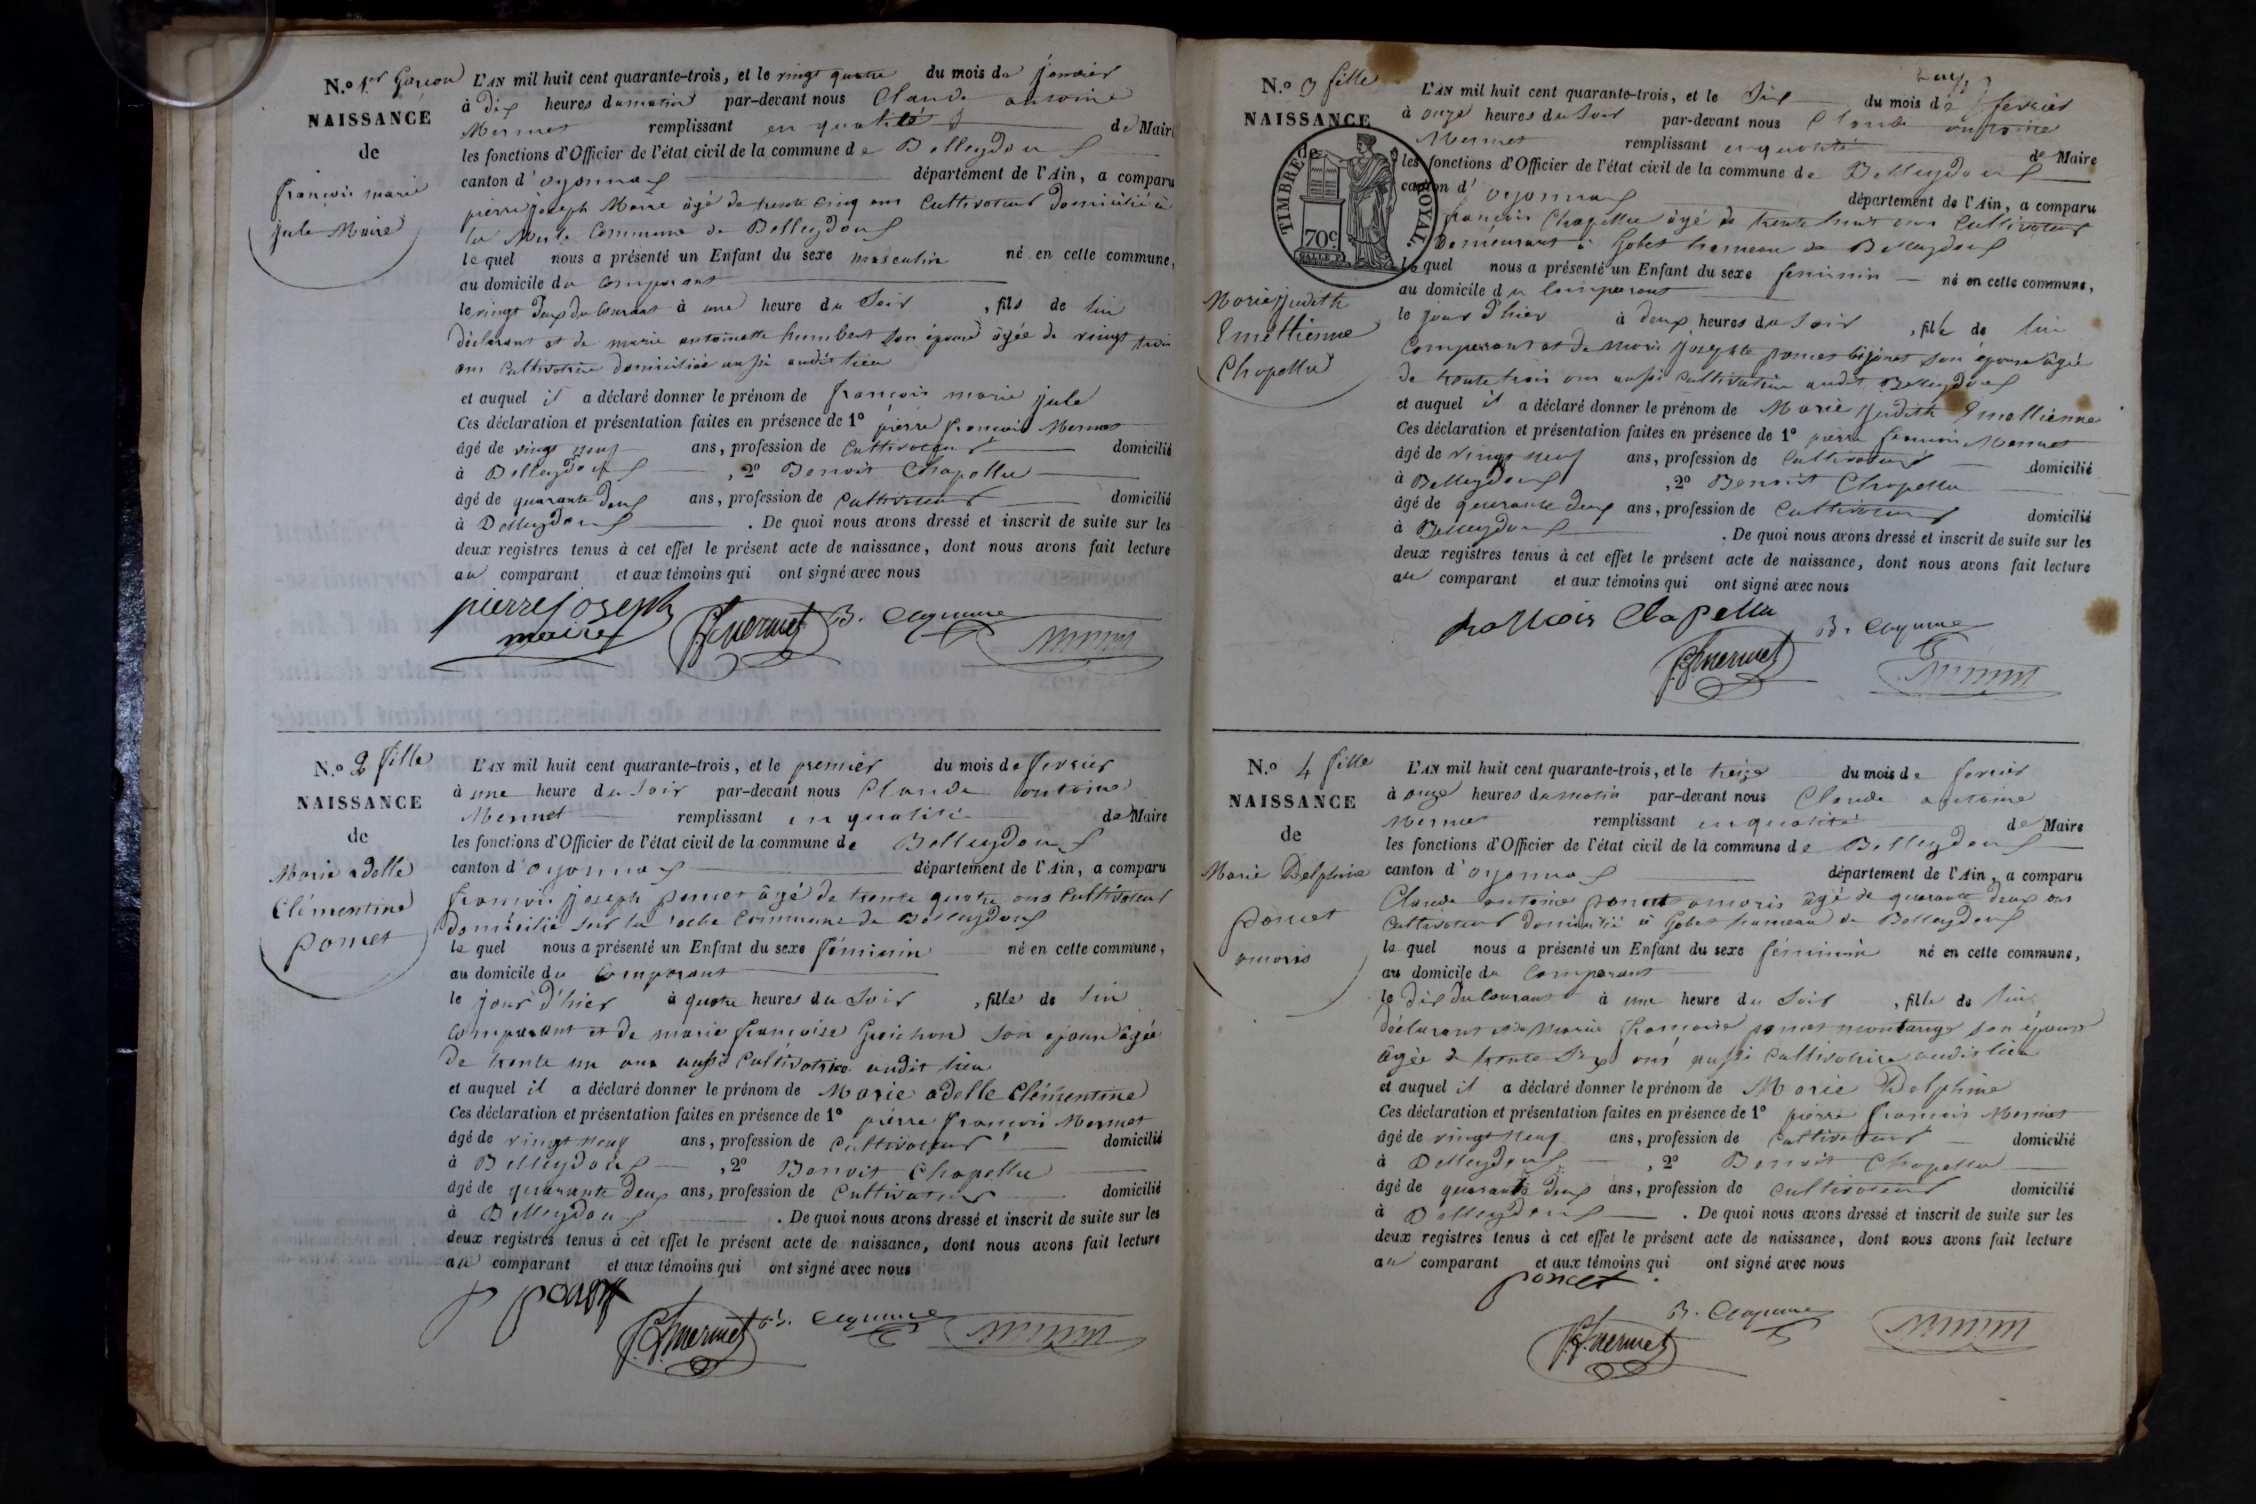 N.o 1er Garcon
NAISSANCE
de
françois marie
jule Maire
L'AN mil huit cent quarante-trois, et le vingt quatre du mois de janvier
à dix heures du matin par-devant nous Claude antoine
Mermet remplissant en qualité de Maire
les fonctions d'Officier de l'état civil de la commune de Belleydoux
canton d'oyonnax département de l'Ain, a comparu
pierre joseph Maire âgé de trente cinq ans Cultivateur Domicilié à
la Commune de Belleydoux
le quel nous a présenté un Enfant du sexe masculin né en cette commune,
au domicile du Comparant
le vingt Deux du Courant à une heure du Soir, fils de lui
déclarant et de marie antoinette humbert son épouse âgée de vingt trois
ans Cultivatrice domiciliée aussi audit lieu
et auquel il a déclaré donner le prénom de françois marie jule
Ces déclaration et présentation faites en présence de 1o pierre francois Mermet
âgé de vingt neuf ans, profession de Cultivateur domicilié
à Belleydoux, 2o Benoit Chapellu
âgé de quarante Deux ans, profession de Cultivateur domicilié
à Belleydoux. De quoi nous avons dressé et inscrit de suite sur les
deux registres tenus à cet effet le présent acte de naissance, dont nous avons fait lecture
au comparant et aux témoins qui ont signé avec nous
pierre joseph
maire
mermet B.
N.o 2 fille
NAISSANCE
de
Marie adelle
Clémentine
poncet
L'AN mil huit cent quarante-trois, et le premier du mois de fevrier
à une heure du Soir par-devant nous Claude antoine
Mermet remplissant en qualité de Maire
les fonctions d'Officier de l'état civil de la commune de Belleydoux
canton d'oyonnax département de l'Ain, a comparu
francois joseph poncet âgé de trente quatre ans Cultivateur
Domicilié sur la Commune de Belleydoux
le quel nous a présenté un Enfant du sexe féminin né en cette commune,
au domicile du Comparant
le jour d'hier à quatre heures du Soir, fille de lui
Comparant et de marie françoise son epouse âgée
de trente un ans aussi Cultivatrice audit lieu
et auquel il a déclaré donner le prénom de Marie adelle Clémentine
Ces déclaration et présentation faites en présence de 1o pierre francois Mermet
âgé de vingt neuf ans, profession de Cultivateur domicilié
à Belleydoux, 2o Benoit Chapellu
âgé de quarante deux ans, profession de Cultivateur domicilié
à Belleydoux. De quoi nous avons dressé et inscrit de suite sur les
deux registres tenus à cet effet le présent acte de naissance, dont nous avons fait lecture
au comparant et aux témoins qui ont signé avec nous
mermet B.
N.o 3 fille
NAISSANCE
de
TIMBRE ROYAL.
70c
Marie judith
Emeltienne
Chapellu
L'AN mil huit cent quarante-trois, et le Six du mois de fevrier
à onze heures du Soir par-devant nous Claude antoine
Mermet remplissant en qualité de Maire
les fonctions d'Officier de l'état civil de la commune de Belleydoux
canton d'oyonnax département de l'Ain, a comparu
françois Chapellu âgé de trente huit ans Cultivateur
Demeurant à Gobet hameau de Belleydoux
le quel nous a présenté un Enfant du sexe feminin né en cette commune,
au domicile du Comparant
le jour d'hier à deux heures du Soir, fille de lui
Comparant et de Marie josephte poncet son épouse âgée
de trente trois ans aussi Cultivatrice audit Belleydoux
et auquel il a déclaré donner le prénom de Marie judith Emeltienne
Ces déclaration et présentation faites en présence de 1o pierre francois Mermet
âgé de vingt neuf ans, profession de Cultivateur domicilié
à Belleydoux, 2o Benoit Chapellu
âgé de quarante deux ans, profession de Cultivateur domicilié
à Belleydoux. De quoi nous avons dressé et inscrit de suite sur les
deux registres tenus à cet effet le présent acte de naissance, dont nous avons fait lecture
au comparant et aux témoins qui ont signé avec nous
francois Chapellu
mermet B.
N.o 4 fille
NAISSANCE
de
Marie Delphine
poncet
amaris
L'AN mil huit cent quarante-trois, et le treize du mois de fevrier
à onze heures du matin par-devant nous Claude antoine
Mermet remplissant en qualité de Maire
les fonctions d'Officier de l'état civil de la commune de Belleydoux
canton d'oyonnax département de l'Ain, a comparu
Claude antoine poncet amaris âgé de quarante deux ans
Cultivateur domicilié à Gobet hameau de Belleydoux
le quel nous a présenté un Enfant du sexe féminin né en cette commune,
au domicile du Comparant
le dix du Courant à une heure du Soir, fille de lui
déclarant et de Marie francoise poncet montange son épouse
âgée de trente Six ans aussi Cultivatrice audit lieu
et auquel il a déclaré donner le prénom de Marie Delphine
Ces déclaration et présentation faites en présence de 1o pierre francois Mermet
âgé de vingt neuf ans, profession de Cultivateur domicilié
à Belleydoux, 2o Benoit Chapellu
âgé de quarante deux ans, profession de Cultivateur domicilié
à Belleydoux. De quoi nous avons dressé et inscrit de suite sur les
deux registres tenus à cet effet le présent acte de naissance, dont nous avons fait lecture
au comparant et aux témoins qui ont signé avec nous
poncet
mermet B.